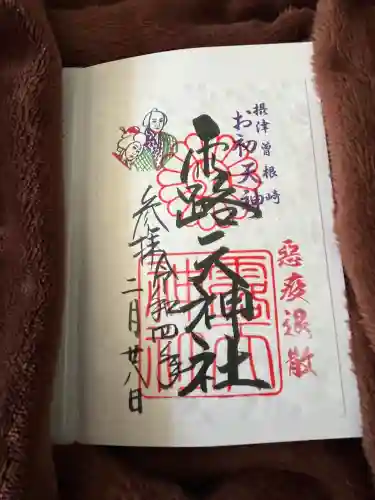 摂津曽根崎
お初天神
露天神社
悪疫退散
参拝令和四年
二月廿八日